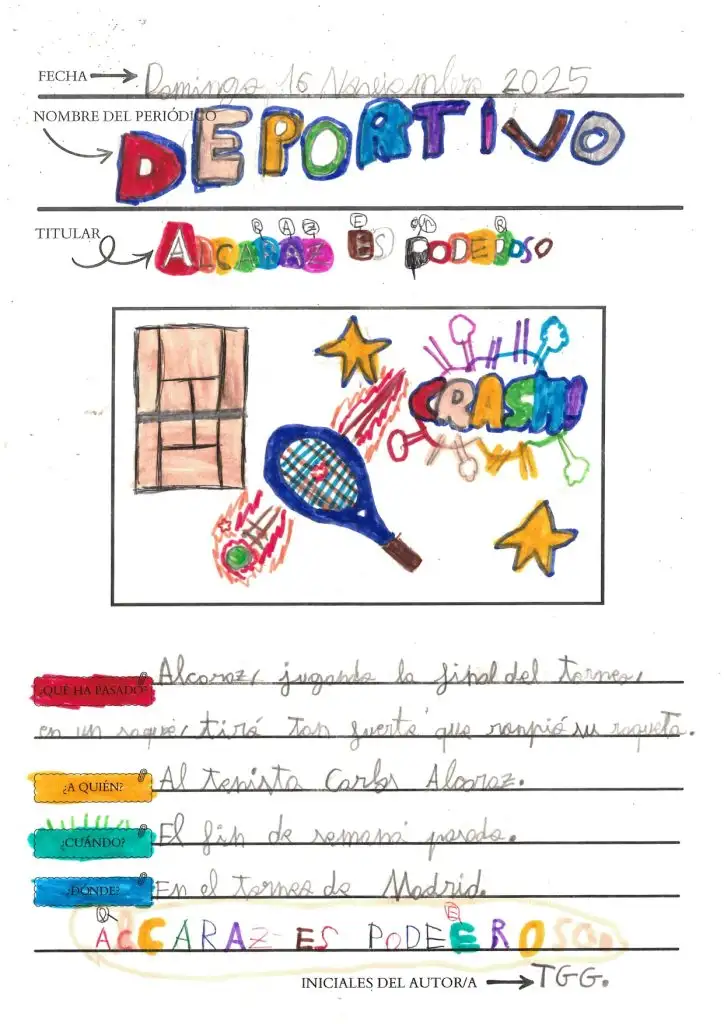 FECHA Domingo 16 Noviembre 2025
NOMBRE DEL PERIÓDICO
DEPORTIVO
TITULAR
ALCARAZ ES PODEROSO
CRASH!
¿QUÉ HA PASADO? Alcaraz, jugando la final del torneo,
en un saque, tiró tan fuerte que rompió su raqueta.
¿A QUIÉN? Al tenista Carlos Alcaraz.
¿CUÁNDO? El fin de semana pasado.
¿DÓNDE? En el torneo de Madrid.
INICIALES DEL AUTOR/A TGG.